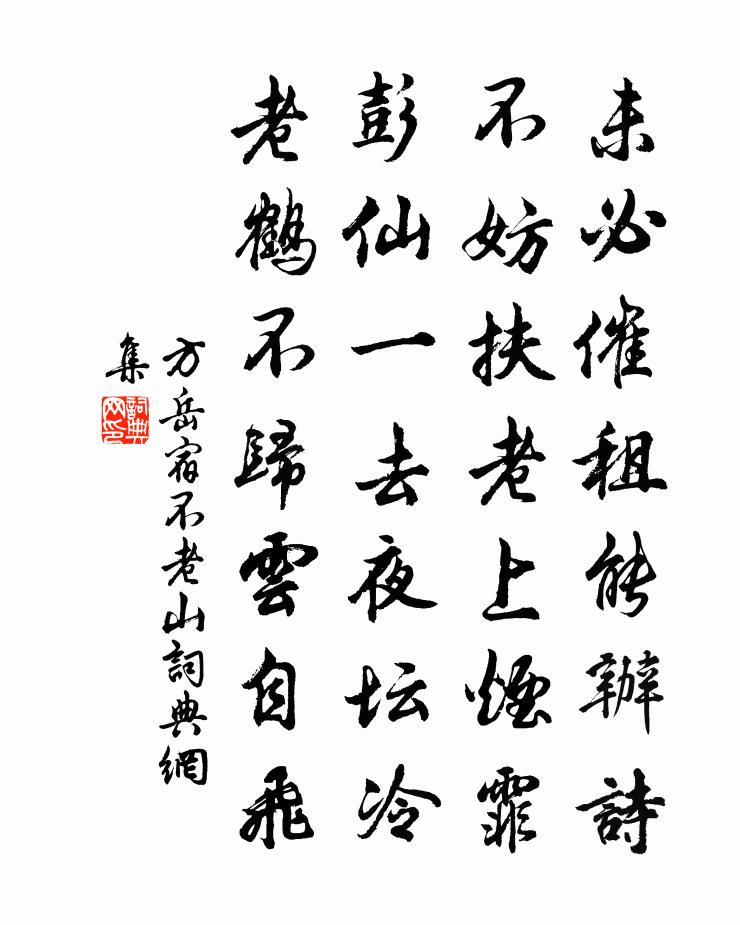 未必催租能辦詩
不妨扶老上煙霏
彭仙一去夜坛冷
老鶴不歸雲自飛
方岳宿不老山詞典網
集
詞典
网印